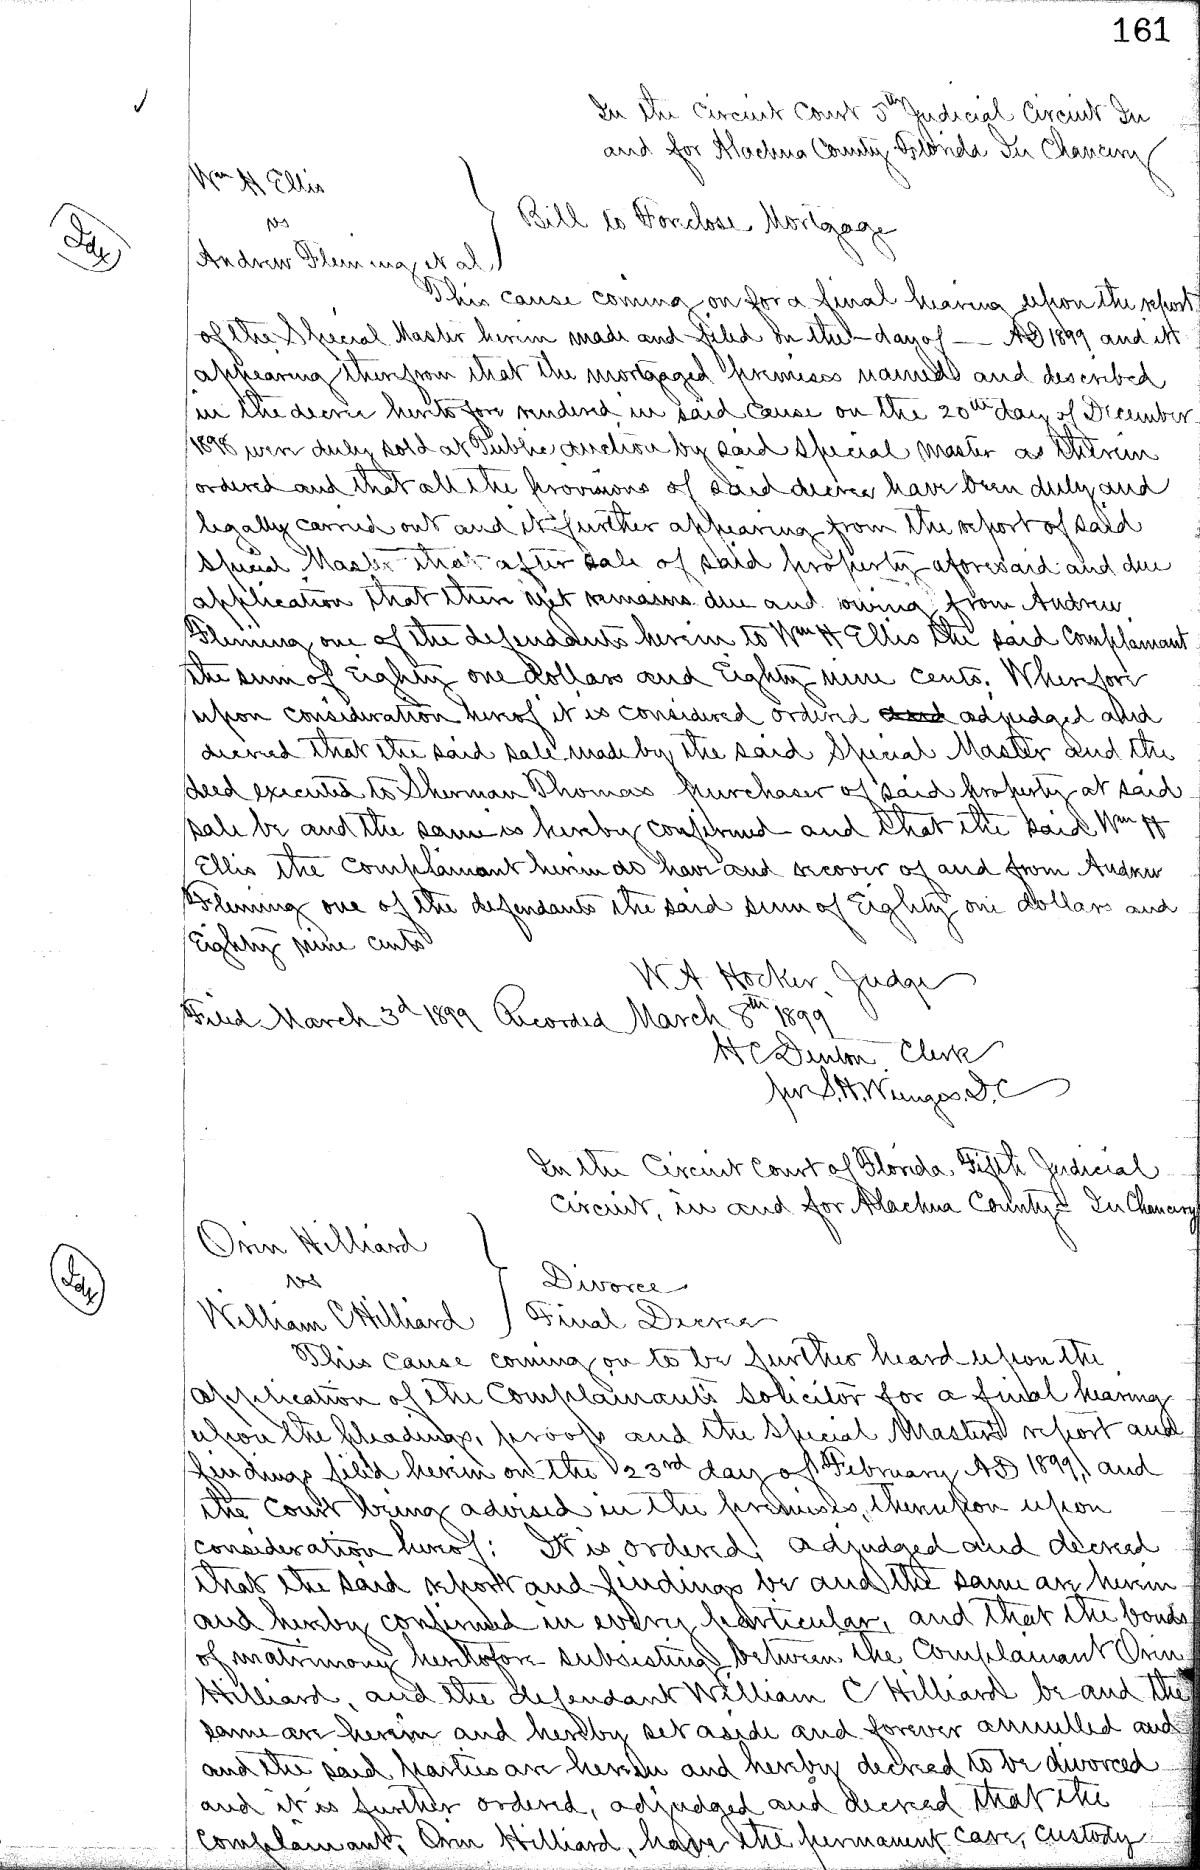 161
In the Circuit Court 5th Judicial Circuit In
and for Alachua County Florida In Chancery
Wm H Ellis
vs
Andrew Fleming et al
Bill to Foreclose Mortgage
Idx
This cause coming on for a final hearing upon the report
of the Special Master herein made and filed on the — day of — AD 1899 and it
appearing therefrom that the mortgaged premises named and described
in the decree heretofore rendered in said cause on the 20th day of December
1898 were duly sold at Public auction by said Special Master as therein
ordered and that all the provisions of said decree have been duly and
legally carried out and it further appearing from the report of said
Special Master that after sale of said property aforesaid and due
application that there yet remains due and owing from Andrew
Fleming one of the defendants herein to Wm H Ellis the said Complainant
the sum of Eighty one dollars and Eighty nine cents. Wherefore
upon consideration hereof it is considered ordered and adjudged and
decreed that the said sale made by the said Special Master and the
deed executed to Sherman Thomas purchaser of said property at said
sale be and the same is hereby confirmed and that the said Wm H
Ellis the Complainant herein do have and recover of and from Andrew
Fleming one of the defendants the said sum of Eighty one dollars and
Eighty nine cents
W A Hocker Judge
Filed March 3d 1899 Recorded March 8th 1899
H C Denton Clerk
per S. H. Wienges. D. C
In the Circuit Court of Florida Fifth Judicial
Circuit, in and for Alachua County - In Chancery
Orin Hilliard
vs
William C Hilliard
Divorce
Final Decree
Idx
This cause coming on to be further heard upon the
application of the Complainants solicitor for a final hearing
upon the pleadings, proofs and the Special Masters report and
findings filed herein on the 23rd day of February AD 1899, and
the Court being advised in the premises, thereupon upon
consideration hereof: It is ordered, adjudged and decreed
that the said report and findings be and the same are herein
and hereby confirmed in every particular, and that the bonds
of matrimony heretofore subsisting between the Complainant Orin
Hilliard, and the defendant William C Hilliard be and the
same are herein and hereby set aside and forever annulled and
and the said parties are herein and hereby decreed to be divorced
and it is further ordered, adjudged and decreed that the
complainant, Orin Hilliard, have the permanent care, custody